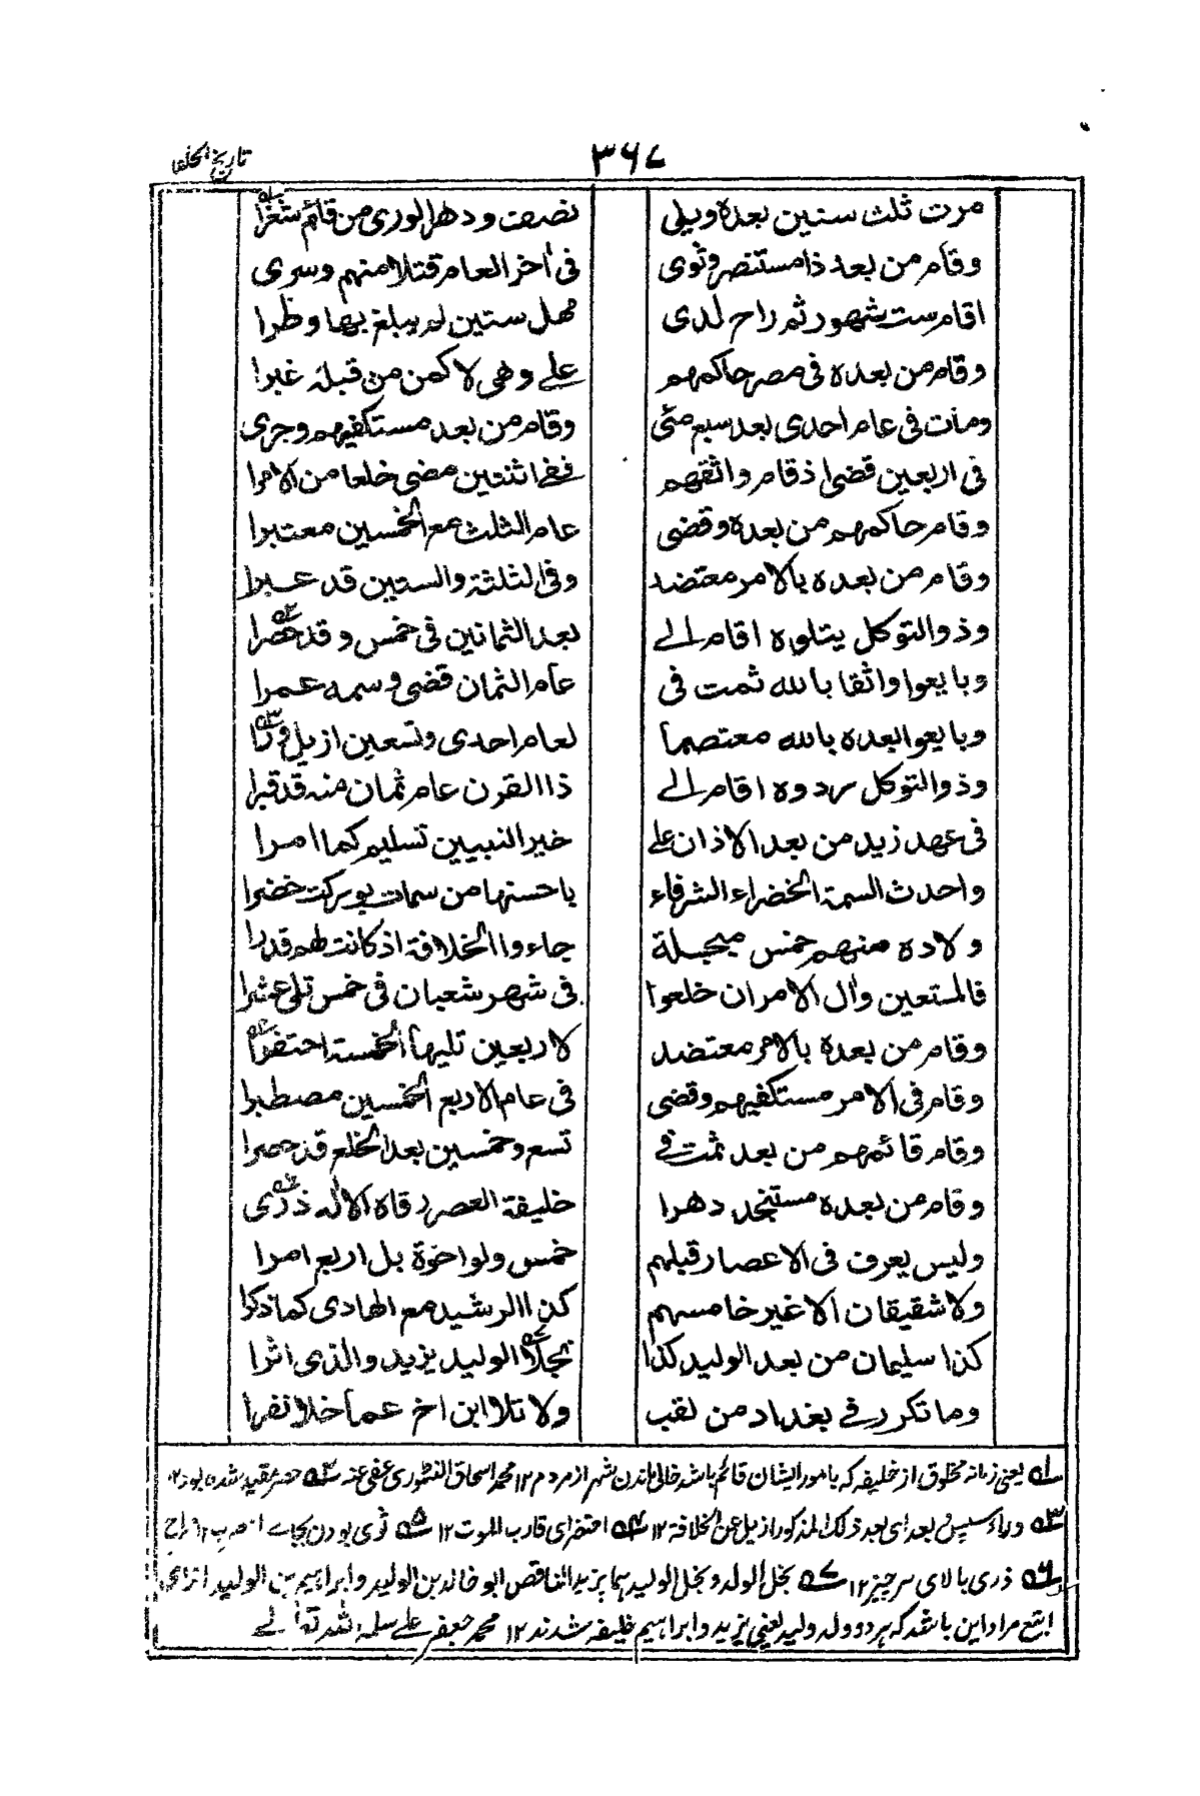 تاريخ الخلفا
٣٦٧
مرت ثلث سنين بعده ويلى نصف ودهر الورى من قائم شغرا
وقام من بعد ذا مستنصر وثوى فى اخر العام قتلا منهم وسرى
اقام ست شهور ثم راح لدى مهل ستين لم يبلغ بها وطرا
وقام من بعده فى مصر حاكمهم على وهى لا كمن من قبله غبرا
ومات فى عام احدى بعد سبع مئى وقام من بعد مستكفيهم وجرى
فى اربعين قضى اذ قام واثقهم ففى اثنتين مضى خلعا من الامرا
وقام حاكمهم من بعده وقضى عام الثلث مع الخمسين معتبرا
وقام من بعده بالامر معتضد وفى الثلثة والستين قد عبرا
وذو التوكل يتلوه اقام الى بعد الثمانين فى خمس وقد حصرا
وبايعوا واثقا بالله ثمت فى عام الثمان قضى وسمه عمرا
وبايعوا بعده بالله معتصما لعام احدى وتسعين ازيل ورا
وذو التوكل ردوه اقام الى ذا القرن عام ثمان منه قد قبرا
فى عهد زيد من بعد الاذان على خير النبيين تسليم كما امرا
واحدث السمة الخضراء الشرفاء يا حسنها من سمات بوركت خضرا
ولاده منهم خمس مبجلة جاءوا الخلافة اذ كانت لهم قدرا
فالمستعين وال الامر ان خلعوا فى شهر شعبان فى خمس تلى عشرا
وقام من بعده بالامر معتضد لاربعين تليها الخمسة احتضرا
وقام فى الامر مستكفيهم وقضى فى عام الاربع الخمسين مصطبرا
وقام قائمهم من بعد ثمت فى تسع وخمسين بعد الخلع قد حصرا
وقام من بعده مستنجد دهرا خليفة العصر رقاه الاله ذرى
وليس يعرف فى الاعصار قبلهم خمس ولوا اخوة بل اربع امرا
ولا شقيقان الا غير خامسهم كذا الرشيد مع الهادى كما ذكرا
كذا سليمان من بعد الوليد كذا نجلا الوليد يزيد والذى اثرا
وما تكرر فى بغداد من لقب ولا تلا ابن اخ عما خلا نفرا
١ يعنى زمانه مخلوق از خليفه كه بامور ايشان قائم باشد خالى ماندن شهر از مردم ١٢ محمد اسحاق عفى عنه ٢ حصر مقيد شده بود ١٢
٣ وراء سپس بعد اى بعد ذلك المذكور ازيل عن الخلافة ١٢ ٤ احتضر اى قارب الموت ١٢ ٥
٦ ذرى بالاى سر چيز ١٢ ٧ نجل الولد ونجل الوليد هما يزيد الناقص ابو خالد بن الوليد وابراهيم بن الوليد اثر اى
اتبع مراد اين باشد كه هر دو ولد وليد يعنى يزيد وابراهيم خليفه شدند ١٢ محمد جعفر على سلمه الله تعالى